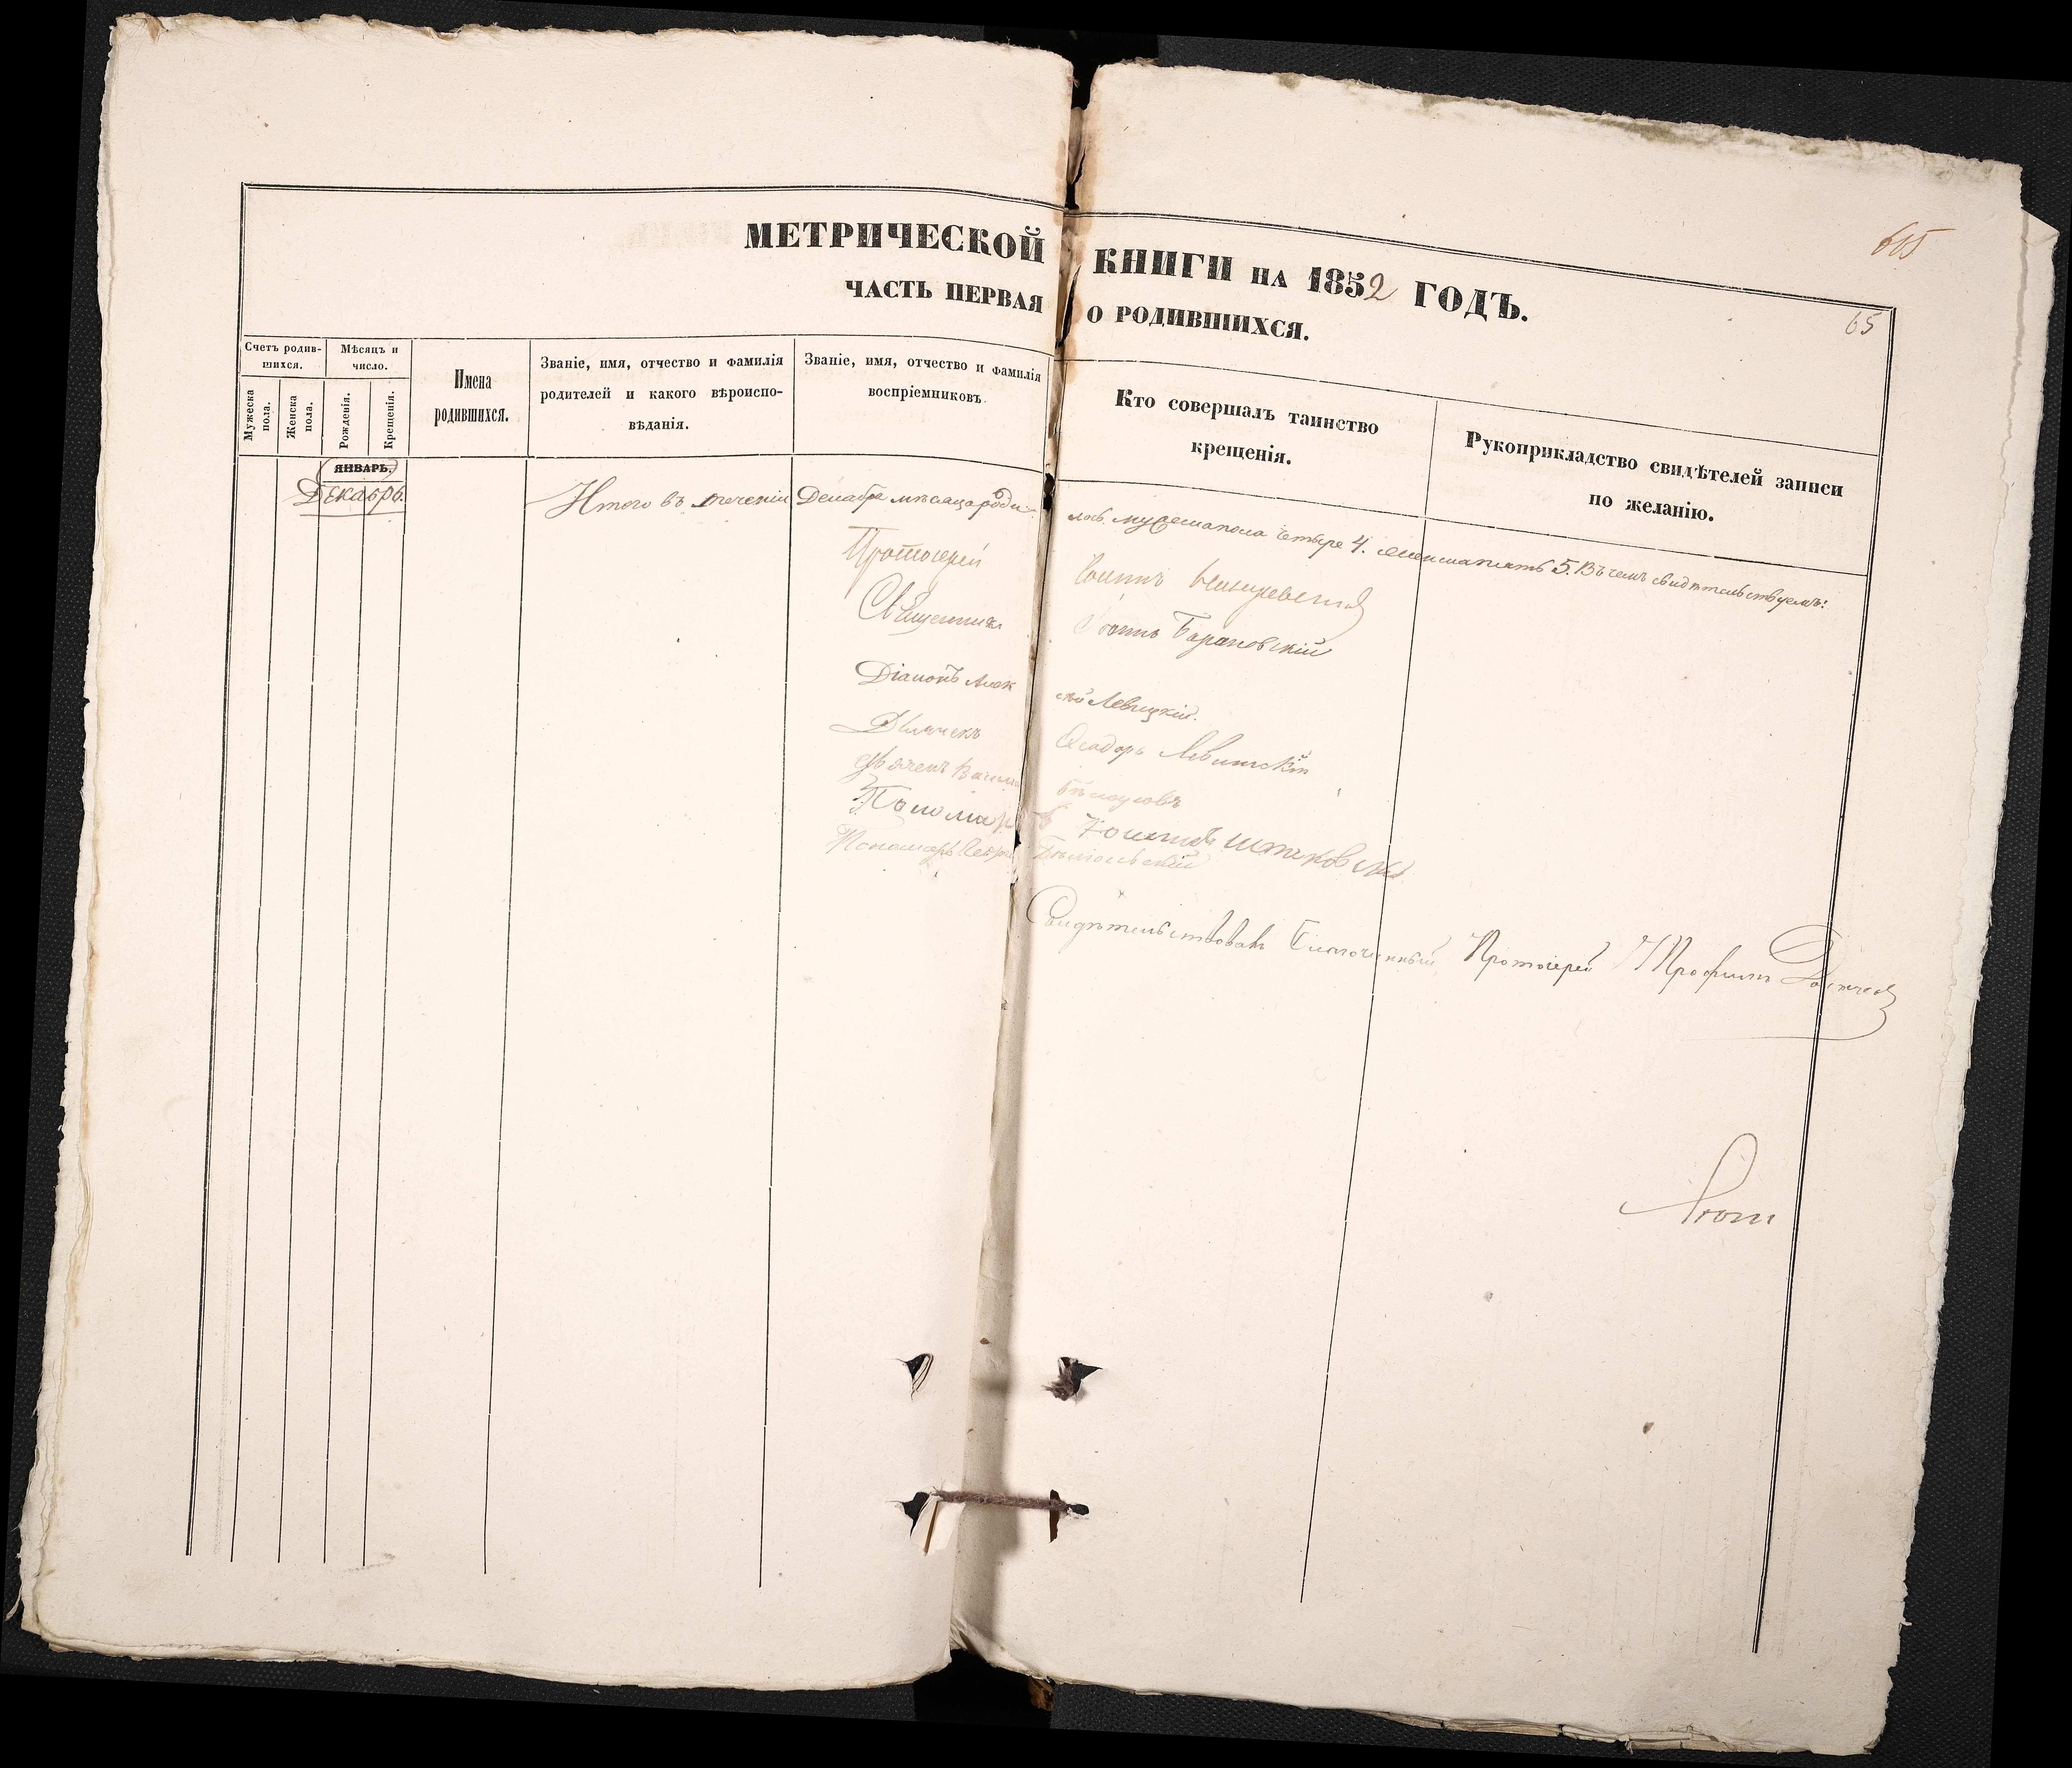 665
МЕТРИЧЕСКОЙ КНИГИ НА 1852 ГОДЪ.
65
ЧАСТЬ ПЕРВАЯ О РОДИВШИХСЯ.
Счетъ родив-
шихся.
Мужеска
пола.
Женска
пола.
Мѣсяцъ и
число.
Рожденія.
Крещенія.
Имена
родившихся.
Званіе, имя, отчество и фамилія
родителей и какого вѣроиспо-
вѣданія.
Званіе, имя, отчество и фамилія
воспріемниковъ.
Кто совершалъ таинство
крещенія.
Рукоприкладство свидѣтелей записи
по желанію.
ЯНВАРЬ.
Декабрь.
Итого въ теченіи Декабря мѣсяца роди-
лось мужескапола четыре 4. женскапять 5. Въ чемъ свидѣтельствуемъ:
Протоіерей Іоаннъ
Священникъ Іоаннъ Барановскій
Діаконъ Алек
сѣй Левицкій.
Дьячекъ Ѳеодоръ Левитскій
Дьячекъ
Пономарь
Пономарь
Свидѣтельствовалъ Благочинный Протоіерей Трофимъ